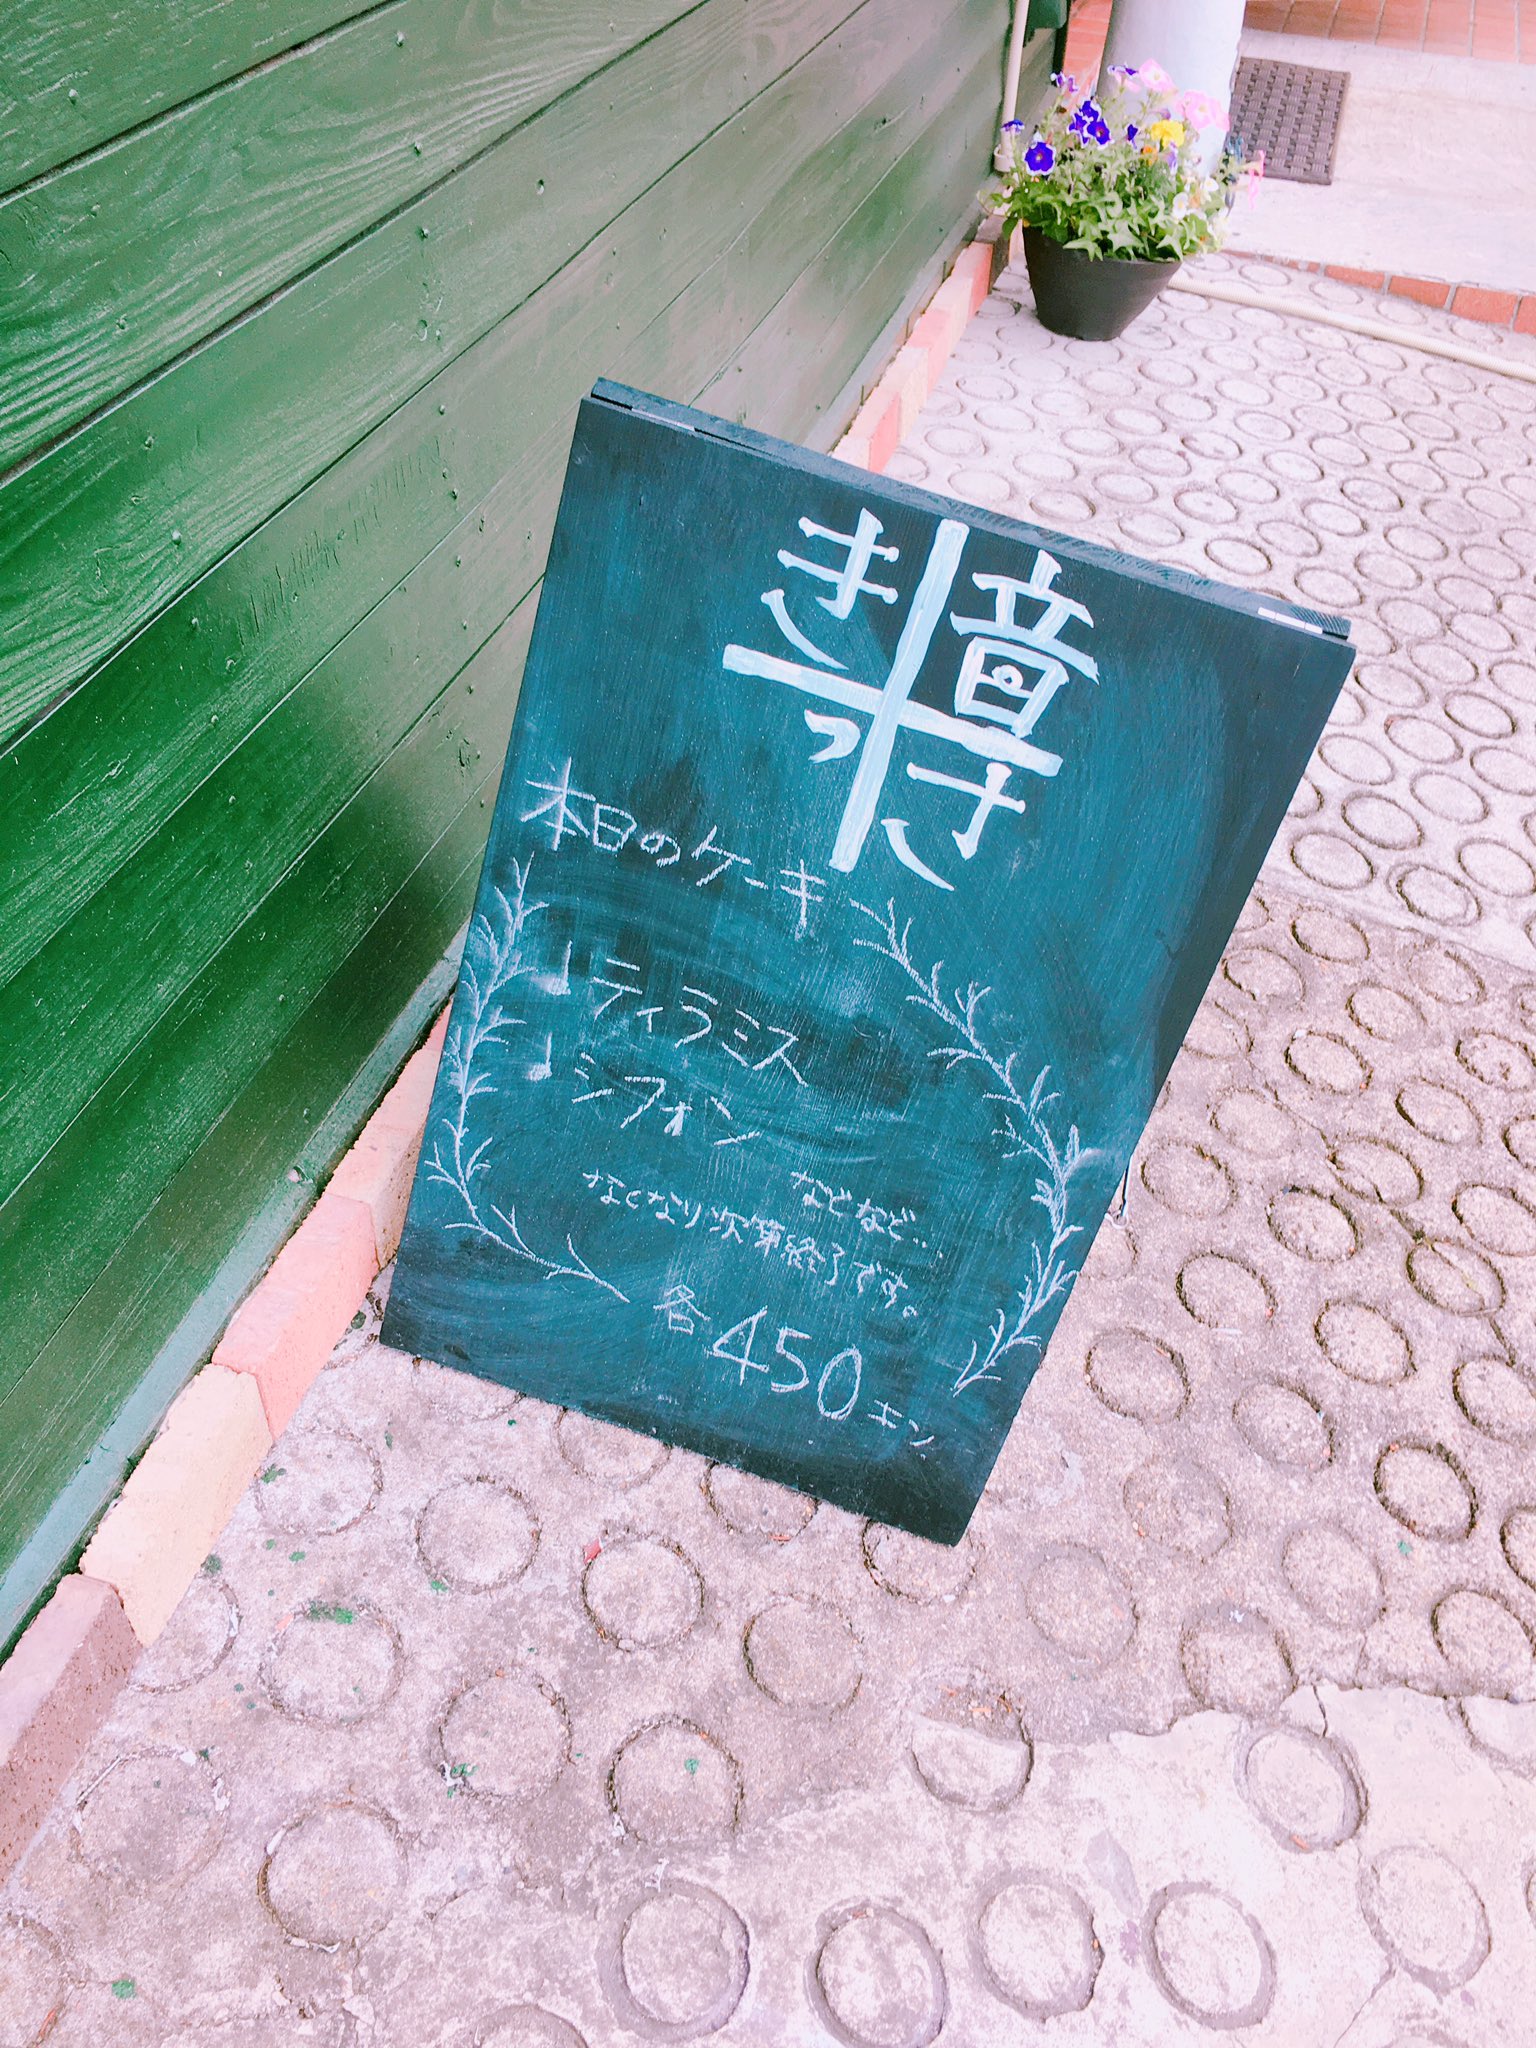 音
き
っ
さ
本日のケーキ
♩ティラミス
♩シフォン
などなど…
なくなり次第終了です。
各450エン